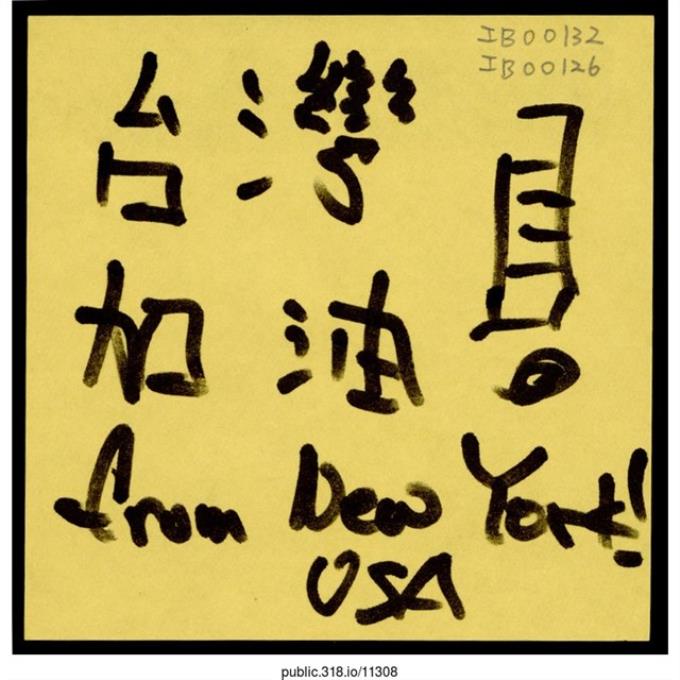 IB00132
IB00126
台灣
加油
from New York!
USA
public.318.io/11308